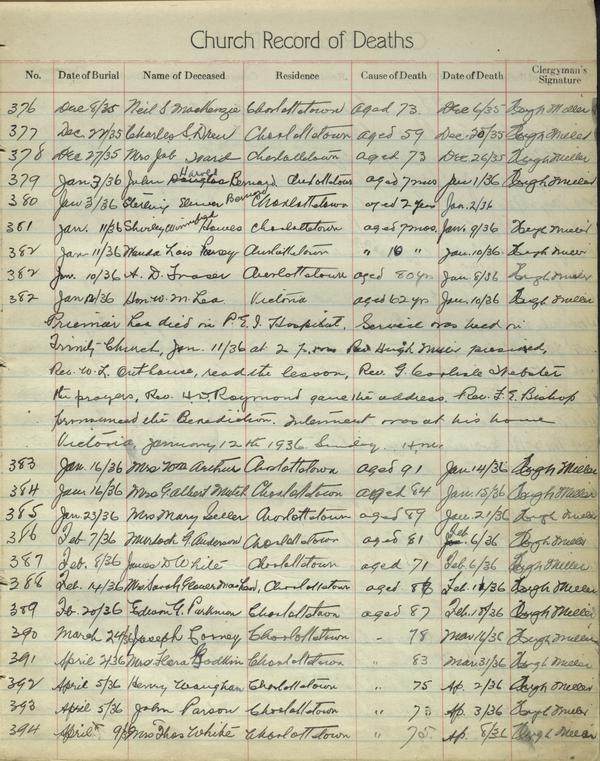 Church Record of Deaths
No. Date of Burial Name of Deceased Residence Cause of Death Date of Death Clergyman's Signature
376 Dec 8/35 Neil S MacKenzie Charlottetown aged 73 Dec 6/35 Hugh Miller
377 Dec 22/35 Charles S. Drew Charlottetown aged 59 Dec. 20/35 Hugh Miller
378 Dec 27/35 Mrs Job Charlottetown aged 73 Dec 26/35 Hugh Miller
379 Jan. 3/36 John Harold Bernard Charlottetown aged 7 mos Jan 1/36 Hugh Miller
380 Jan 3/36 Sterling Bernard Charlottetown aged 2 year Jan. 2/36
381 Jan. 11/36 Shirley Howes Charlottetown aged 7 mos. Jan. 9/36 Hugh Miller
382 Jan. 11/36 Wanda Lois Charlottetown " 10 " Jan. 10/36 Hugh Miller
382 Jan. 10/36 A. D. Fraser Charlottetown aged 80 yr Jan. 8/36 Hugh Miller
382 Jan 12/36 Hon. W. M. Lea Victoria aged 62 yr Jan. 10/36 Hugh Miller
Premier Lea died in P. E. I. Hospital. Service was held in
Trinity Church, Jan. 11/36 at 2 p.m. Rev Hugh Miller presided,
Rev. W. L. Orthouse, read the lesson, Rev. G. Carlisle Webster
the prayers, Rev. H. D. Raymond gave the address. Rev. F. E. Bishop
pronounced the Benediction. Interment was at his home
Victoria, January 12th 1936 Sunday.
383 Jan. 16/36 Mrs Wm Arthur Charlottetown aged 91 Jan. 14/36 Hugh Miller
384 Jan. 16/36 Mrs G Albert Charlottetown aged 84 Jan. 15/36 Hugh Miller
385 Jan. 23/36 Mrs Mary Charlottetown aged 89 Jan. 21/36 Hugh Miller
386 Feb 7/36 Murdoch G. Anderson Charlottetown aged 81 Feb 6/36 Hugh Miller
387 Feb. 8/36 James D. White Charlottetown aged 71 Feb 6/36 Hugh Miller
388 Feb. 14/36 Mrs Sarah Charlottetown aged Feb. /36 Hugh Miller
389 Feb. 20/36 Edson G Parkman Charlottetown aged 87 Feb. 18/36 Hugh Miller
390 March 24/36 Joseph Corney Charlottetown - 78 Mar. /36 Hugh Miller
391 April 2/36 Mrs Flora Godkin Charlottetown " 83 Mar. 31/36 Hugh Miller
392 April 5/36 Henry Vaughan Charlottetown " 75 Ap. 2/36 Hugh Miller
393 April 5/36 John Parson Charlottetown " Ap. 3/36 Hugh Miller
394 April 9/36 Mrs Thos White Charlottetown " Ap. 8/36 Hugh Miller